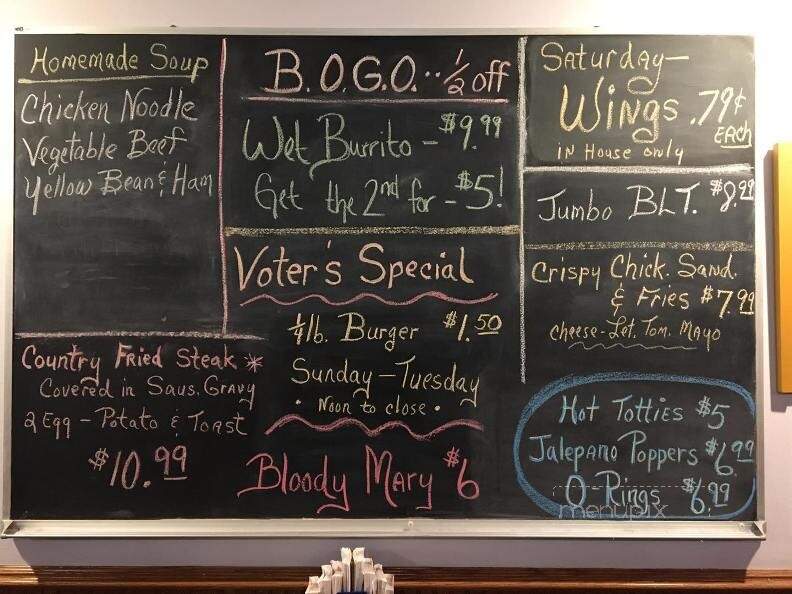 Homemade Soup
Chicken Noodle
Vegetable Beef
Yellow Bean & Ham
Country Fried Steak *
Covered in Saus. Gravy
2 Egg - Potato & Toast
$10.99
B.O.G.O... 1/2 off
Wet Burrito - $9.99
Get the 2nd for - $5!
Voter's Special
1/4 lb. Burger $1.50
Sunday - Tuesday
• Noon to close •
Bloody Mary $6
Saturday -
Wings .79¢
EACH
in House only
Jumbo BLT. $8.99
Crispy Chick. Sand.
& Fries $7.99
cheese - Let. Tom. Mayo
Hot Totties $5
Jalepano Poppers $6.99
O-Rings $6.99
menupix